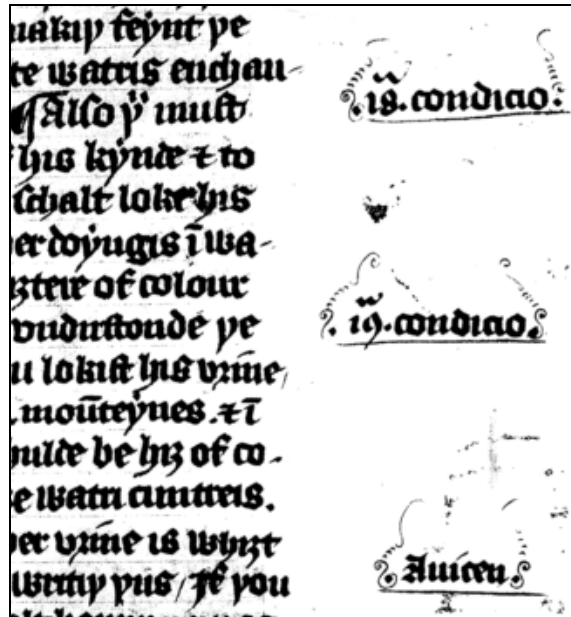 makiþ feynt þe
te watris enchau-
¶Also þu must
his kynde ⁊ to
schalt loke his
er doyngis ī wa-
ȝtere of colour
vndirstonde þe
u lokist his vrine,
moūteynes. ⁊ ī
hulde be hiȝ of co-
e watri
er vrine is whiȝt
writiþ þus, If þou
.18. condicio.
.19. condicio.
Auicen.